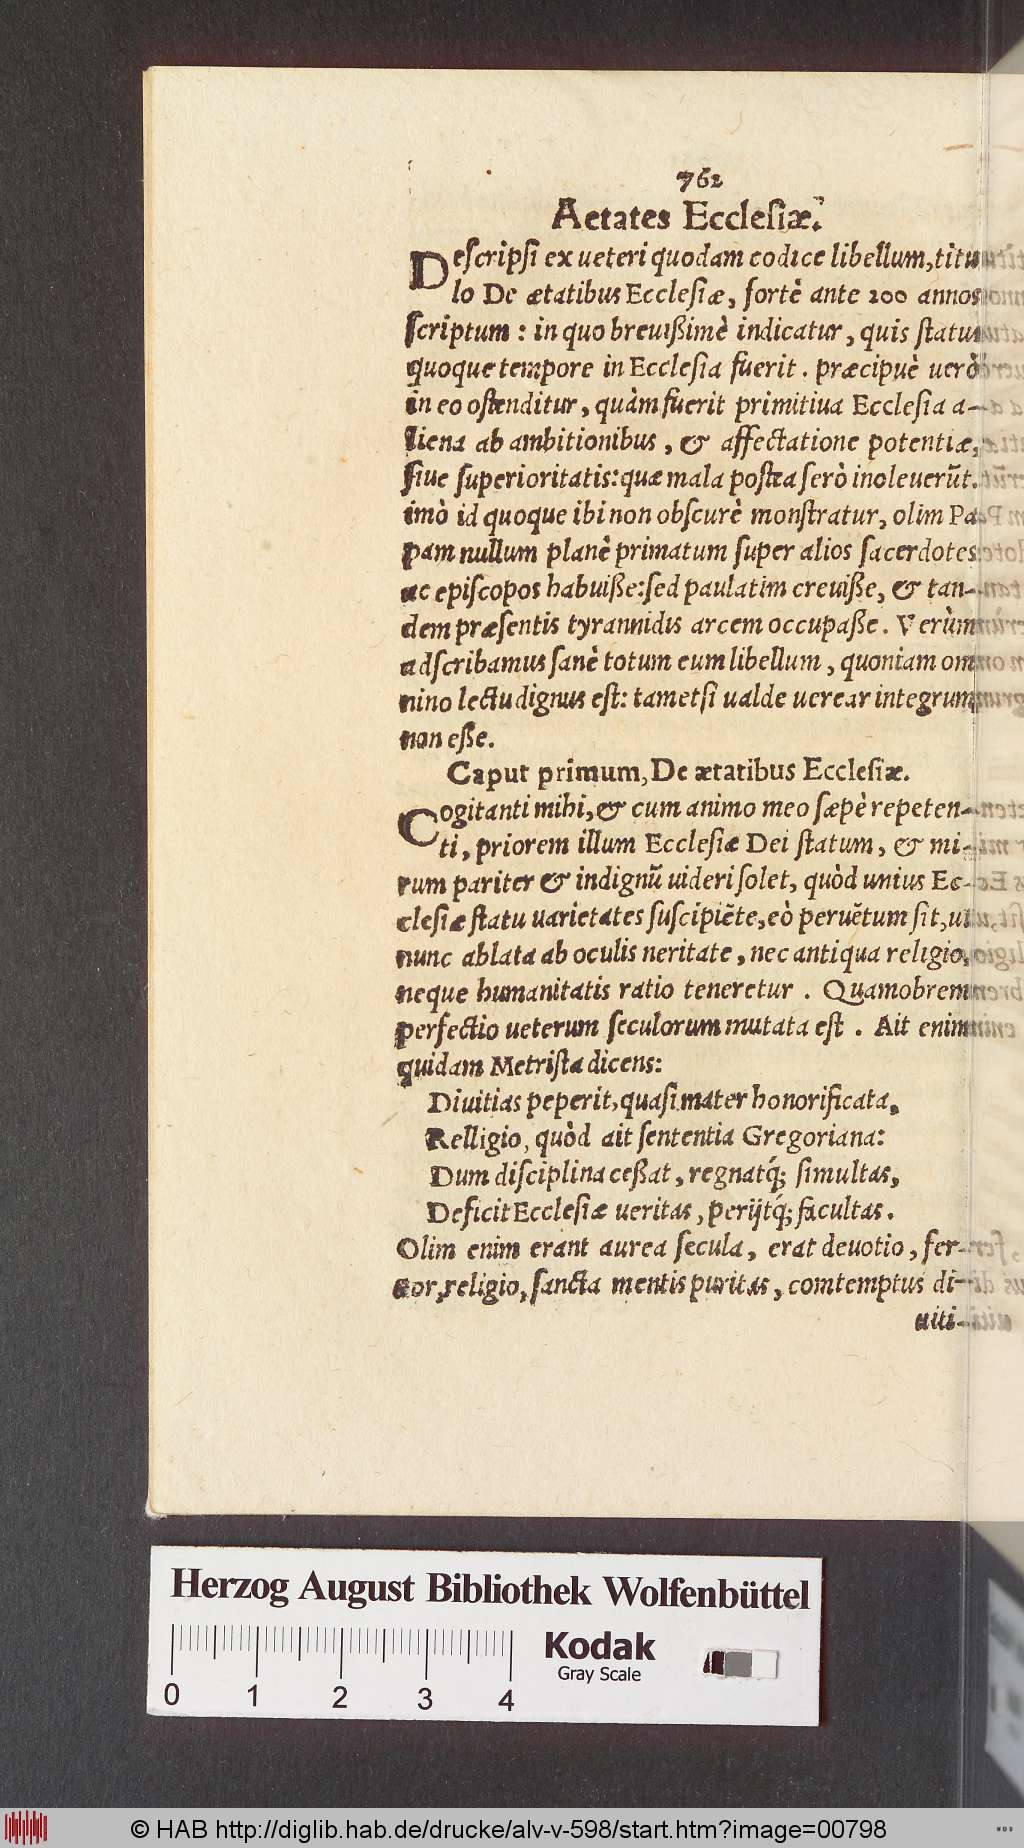 762
Aetates Ecclesiæ.
Descripsi ex ueteri quodam codice libellum, titu
lo De ætatibus Ecclesiæ, fortè ante 200 annos
scriptum: in quo breuißimè indicatur, quis status
quoque tempore in Ecclesia fuerit. præcipuè uerò
in eo ostenditur, quàm fuerit primitiua Ecclesia a-
liena ab ambitionibus, & affectatione potentiæ,
siue superioritatis: quæ mala postea serò inoleuerũt.
imò id quoque ibi non obscurè monstratur, olim Pa
pam nullum planè primatum super alios sacerdotes
ac episcopos habuiße: sed paulatim creuiße, & tan-
dem præsentis tyrannidis arcem occupaße. Verùm
adscribamus sanè totum eum libellum, quoniam om
nino lectu dignus est: tametsi ualde uerear integrum
non eße.
Caput primum, De ætatibus Ecclesiæ.
Cogitanti mihi, & cum animo meo sæpè repeten-
ti, priorem illum Ecclesiæ Dei statum, & mi-
rum pariter & indignũ uideri solet, quòd unius Ec-
clesiæ statu uarietates suscipiẽte, eò peruẽtum sit, ut
nunc ablata ab oculis neritate, nec antiqua religio,
neque humanitatis ratio teneretur. Quamobrem
perfectio ueterum seculorum mutata est. Ait enim
quidam Metrista dicens:
Diuitias peperit, quasi mater honorificata,
Relligio, quòd ait sententia Gregoriana:
Dum disciplina ceßat, regnatq́; simultas,
Deficit Ecclesiæ ueritas, perijtq́; facultas.
Olim enim erant aurea secula, erat deuotio, fer-
uor, religio, sancta mentis puritas, comtemptus di-
uiti-
Herzog August Bibliothek Wolfenbüttel
Kodak
Gray Scale
0 1 2 3 4
© HAB http://diglib.hab.de/drucke/alv-v-598/start.htm?image=00798